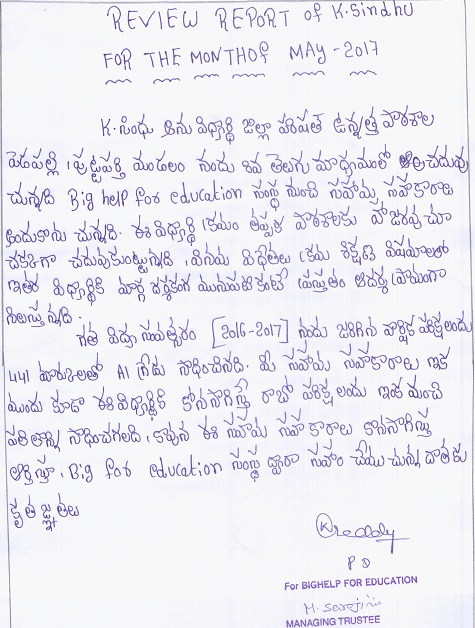 REVIEW REPORT of K.Sindhu
FOR THE MONTHOf MAY - 2017
K.సింధు అను విద్యార్థి జిల్లా పరిషత్ ఉన్నత పాఠశాల
పెడపల్లి, పుట్టపర్తి మండలం నందు తెలుగు మాధ్యమంలో చదువు
చున్నది Big help for education సంస్థ నుంచి సహాయ సహకారాలు
అందుకొను చున్నది. ఈ విద్యార్థి క్రమం తప్పక పాఠశాలకు హాజరవుచూ
చక్కగా చదువుకుంటున్నది. వినయ విధేయతలు క్రమ శిక్షణ విషయాలలో
ఇతర విద్యార్థికి మార్గ దర్శకంగ మునుపటికంటే ప్రస్తుతం ఆదర్శ ప్రాయంగా
నిలుస్తున్నది.
గత విద్యా సంవత్సరం [2016-2017] నందు జరిగిన వార్షిక పరీక్షలందు
441 మార్కులతో A1 గ్రేడు సాధించినది. మీ సహాయ సహకారాలు ఇక
ముందు కూడా ఈ విద్యార్థికి కొనసాగిస్తే రాబో పరీక్షలందు ఇంక మంచి
ఫలితాన్ని సాధించగలది. కావున ఈ సహాయ సహకారాలు కొనసాగిస్తే
Big for education సంస్థ ద్వారా సహాయం చేయు చున్న దాతకు
కృతజ్ఞతలు
KReddy
P D
For BIGHELP FOR EDUCATION
MANAGING TRUSTEE